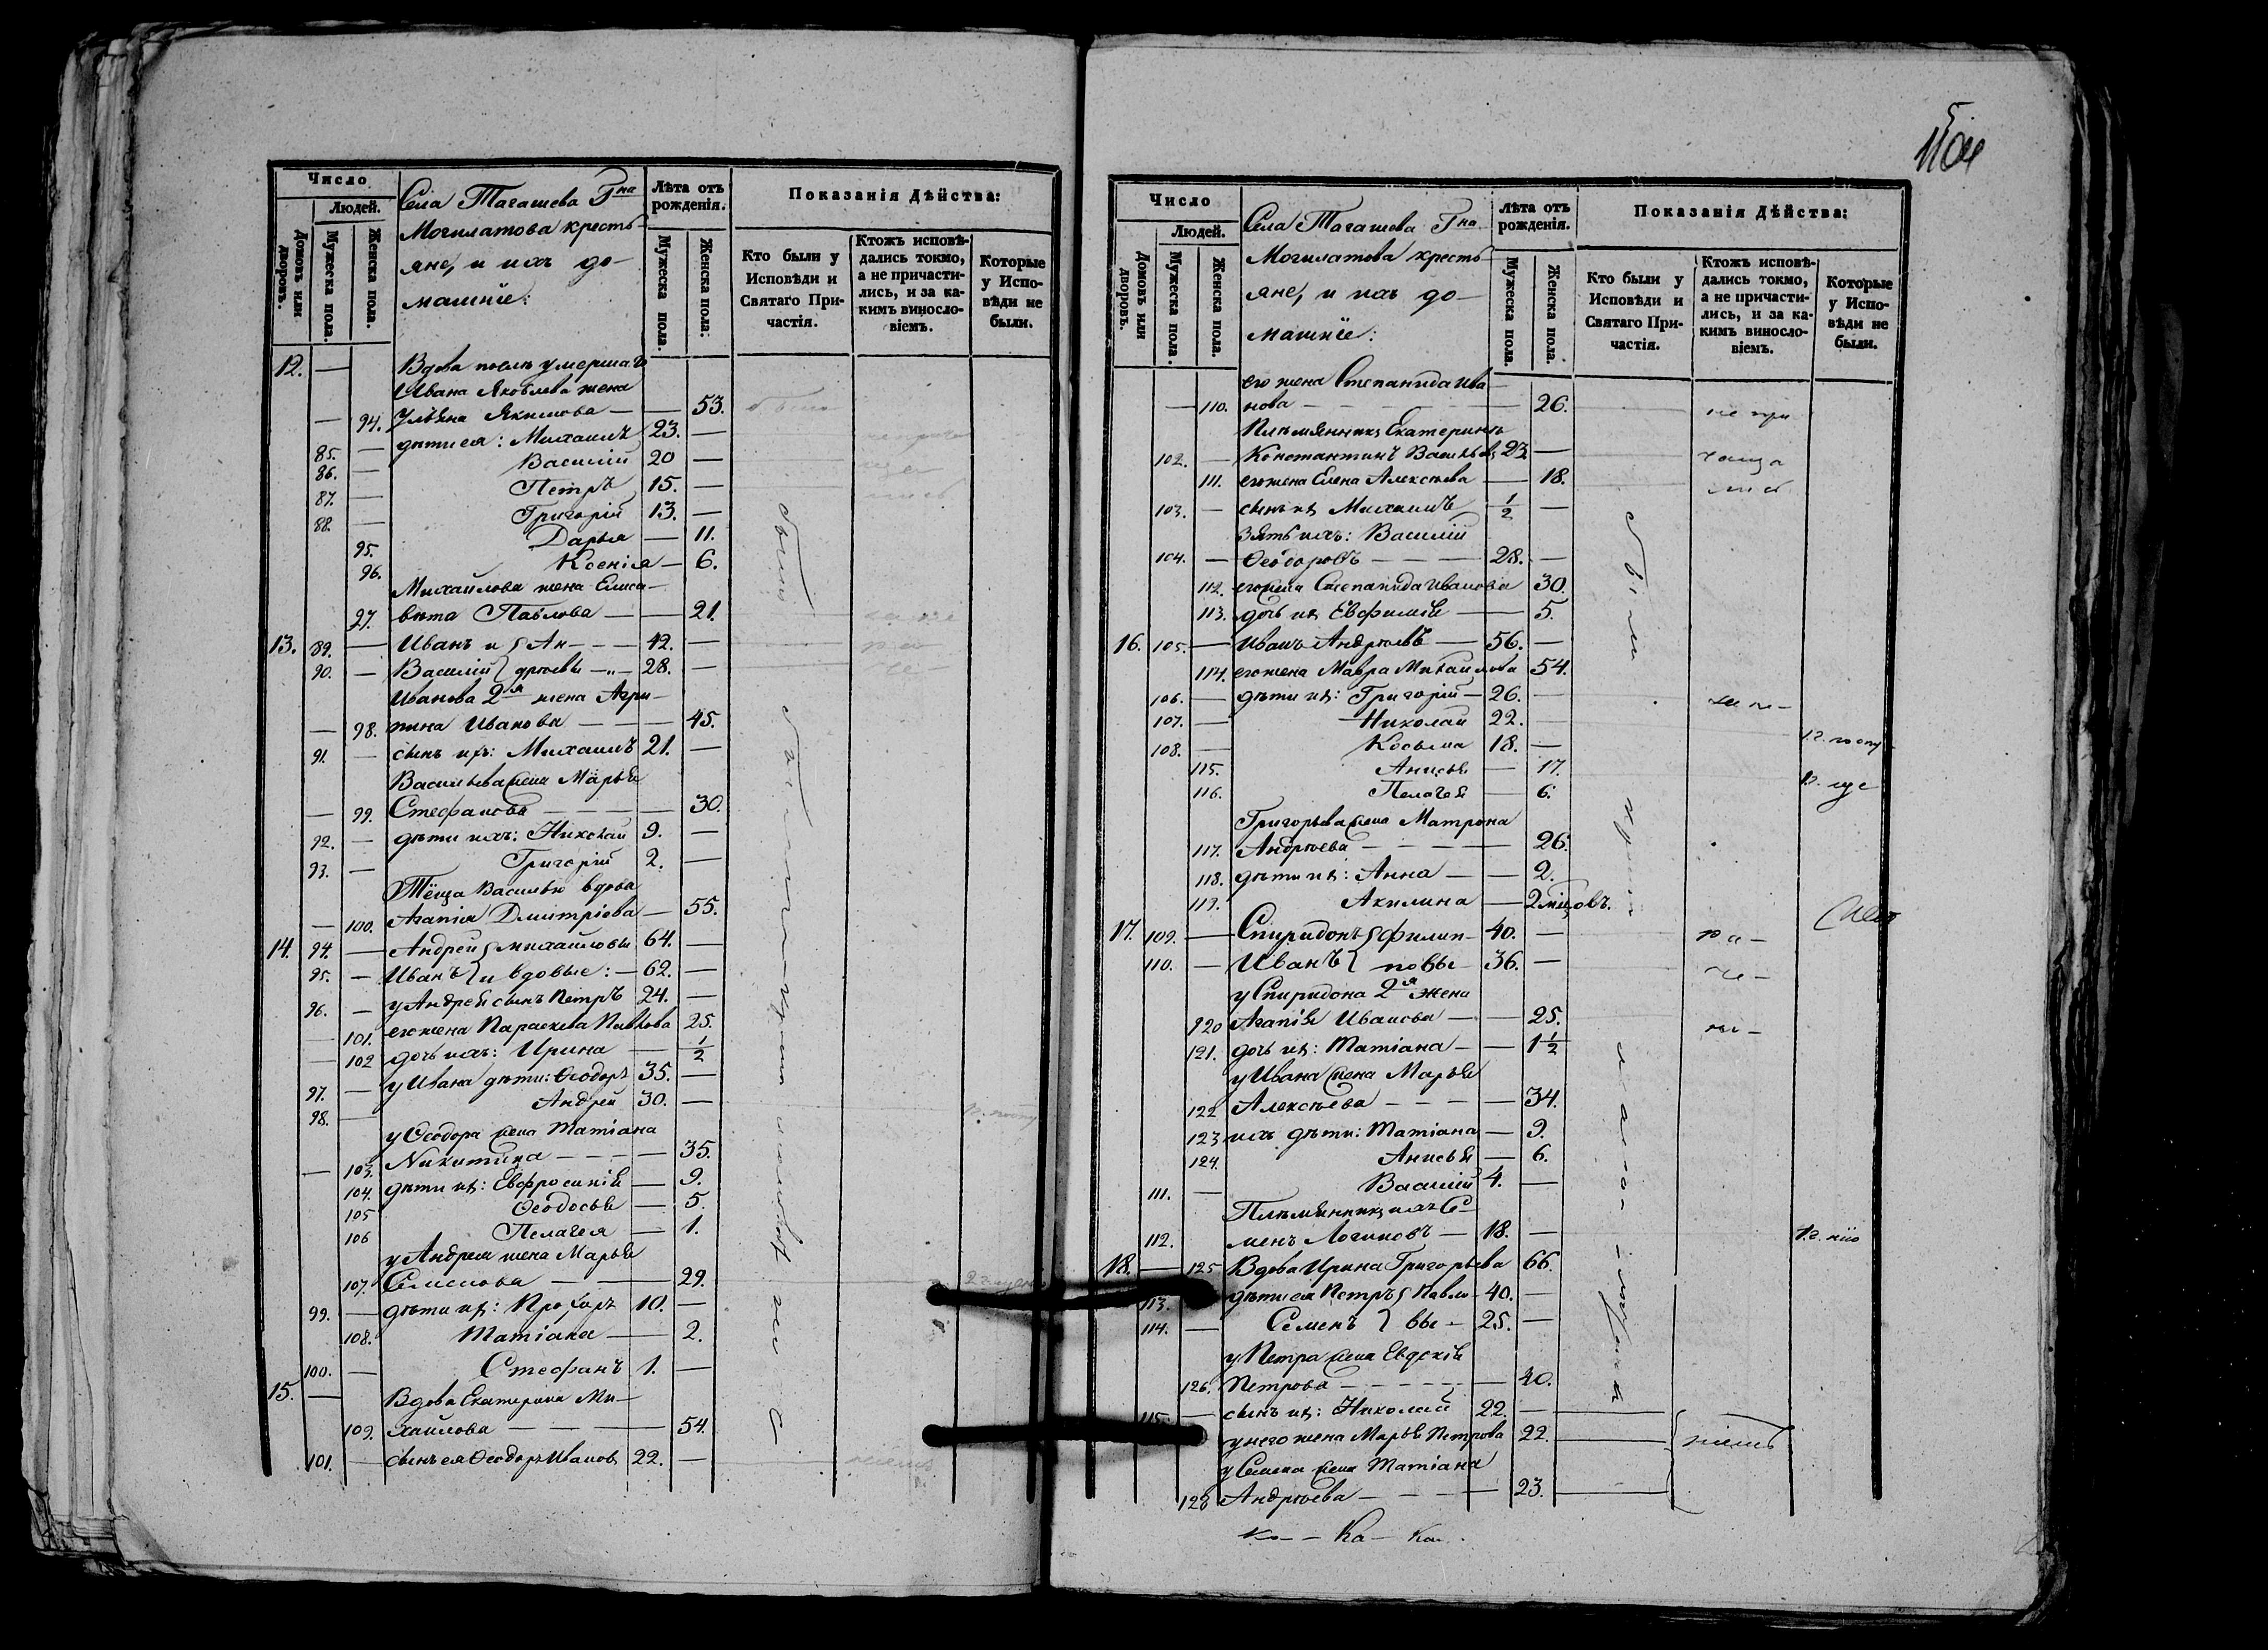 Число
Людей.
Домовъ или дворовъ.
Мужеска пола.
Женска пола.
Села Тагашева Гна
Могилатова кресть-
яне, и ихъ до-
машніе:
Лѣта отъ рожденія.
Мужеска пола.
Женска пола:
Показанія Дѣйства:
Кто были у Исповѣди и Святаго При-частія.
Ктожъ исповѣ-дались токмо, а не причасти-лись, и за ка-кимъ винosло-віемъ.
Которые у Испо-вѣди не были.
12. — Вдова послѣ умершаго
Ивана Яковлева жена
— 94. Ульяна Якимова — — 53.
85. — дѣти ея: Михаилъ 23. —
86. — Василій 20 —
87. — Петръ 15. —
88. — Григорій 13. —
95. Дарья — 11.
96. Ксенія — 6.
Михайлова жена Елиса-
97. вета Павлова — — 21.
13. 89. — Иванъ и Ан- — — 42. —
90. — Василій дреевы — 28. —
Иванова 2я жена Агри-
— 98. пина Иванова — — — 45.
91. — сынъ ихъ: Михаилъ 21. —
Васильева жена Марья
— 99. Стефанова — — — 30.
92. — дѣти ихъ: Николай 9. —
93. — Григорій 2. —
Тёща Василью вдова
— 100. Агапія Дмитріева — 55.
14. 94. — Андрей Михайловы 64. —
95. — Иванъ и вдовые: — 62. —
96. — у Андрея сынъ Петръ 24. —
— 101. его жена Параскева Павлова 25.
— 102 дочь ихъ: Ирина — 1/2
97. — у Ивана дѣти: Ѳеодоръ 35. —
98. — Андрей 30. —
у Ѳеодора жена Татіана
— 103. Никитина — — — — 35.
104. дѣти ихъ: Евфросинія — 9.
105 Ѳеодосья — 5.
106 Пелагея — 1.
у Андрея жена Марья
107. Семенова — — 29.
99. — дѣти ихъ: Прохоръ 10. —
108. Татіана — 2.
100. — Стефанъ 1. —
15. — Вдова Екатерина Ми-
109. хайлова — — — — 54.
101. — сынъ ея Ѳеодоръ Иванов 22. —
Число
Людей.
Домовъ или дворовъ.
Мужеска пола.
Женска пола.
Села Тагашева Гна
Могилатова кресть-
яне, и ихъ до-
машніе:
Лѣта отъ рожденія.
Мужеска пола.
Женска пола.
Показанія Дѣйства:
Кто были у Исповѣди и Святаго При-частія.
Ктожъ исповѣ-дались токмо, а не причасти-лись, и за ка-кимъ винosло-віемъ.
Которые у Испо-вѣди не были.
его жена Степанида Ива-
— 110. нова — — — — 26.
Племянникъ Екатеринѣ
102. — Константинъ Васильев 23 —
111. его жена Елена Алексѣева — 18.
103. — сынъ ихъ Михаилъ 1/2 —
Зять ихъ: Василій
104. — Ѳеодоровъ — — — 28. —
112. его жена Степанида Иванова 30.
113. дочь ихъ Евфимія — 5.
16. 105. — Иванъ Андреевъ — 56. —
114. его жена Мавра Михайлова 54.
106. — дѣти ихъ: Григорій — 26. —
107. — Николай 22. —
108. — Косьма 18. —
115. Анисья — 17.
116. Пелагея — 6.
Григорьева жена Матрона
117. Андреева — — — — 26.
118. дѣти ихъ: Анна — — 2.
119. Акилина — 2 мцовъ.
17. 109. — Спиридонъ Филип- 40. —
110. — Иванъ повы — 36. —
у Спиридона 2я жена
120 Агапія Иванова — — 25.
121. дочь ихъ: Татіана — — 1 1/2
у Ивана жена Марья
122 Алексѣева — — — — 34.
123 ихъ дѣти: Татіана — 9.
124. Анисья — 6.
111. — Василій 4. —
Племянникъ ихъ Се-
112. менъ Логиновъ — 18. —
18. — 125 Вдова Ирина Григорьева 66.
113. дѣти ея Петръ Павло- 40. —
114. — Семенъ вы — 25. —
у Петра жена Евдокія
126. Петрова — — — — — 40.
115. — сынъ ихъ: Николай 22. —
у него жена Марья Петрова 22.
у Семена жена Татіана
128 Андреева — — — — 23.